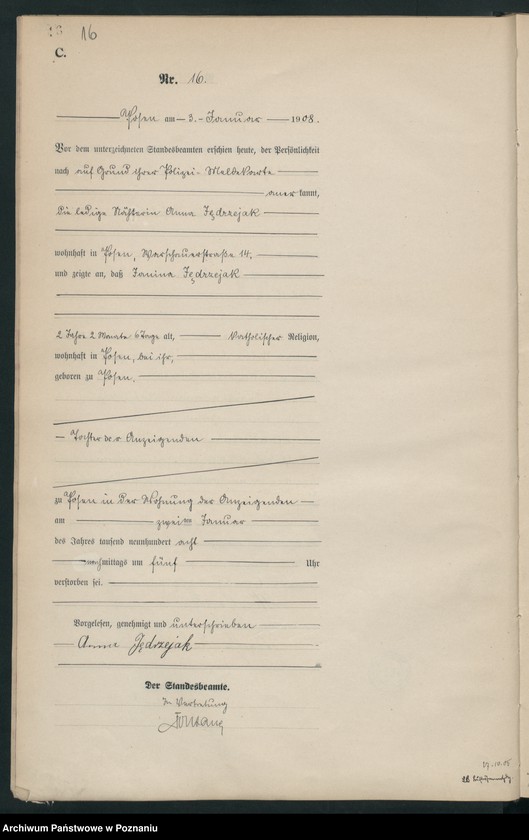 16
C.
Nr. 16.
Posen am 3. Januar 1908.
Vor dem unterzeichneten Standesbeamten erschien heute, der Persönlichkeit
nach auf Grund ihrer Polizei-Meldekarte
anerkannt,
die ledige Nähterin Anna Jędrzejak
wohnhaft in Posen, Warschauerstraße 14,
und zeigte an, daß Janina Jędrzejak
2 Jahre 2 Monate 6 Tage alt, katholischer Religion,
wohnhaft in Posen, bei ihr,
geboren zu Posen,
Tochter der Anzeigenden
zu Posen in der Wohnung der Anzeigenden
am zweiten Januar
des Jahres tausend neunhundert acht
mittags um fünf Uhr
verstorben sei.
Vorgelesen, genehmigt und unterschrieben
Anna Jędrzejak
Der Standesbeamte.
In Vertretung
Archiwum Państwowe w Poznaniu